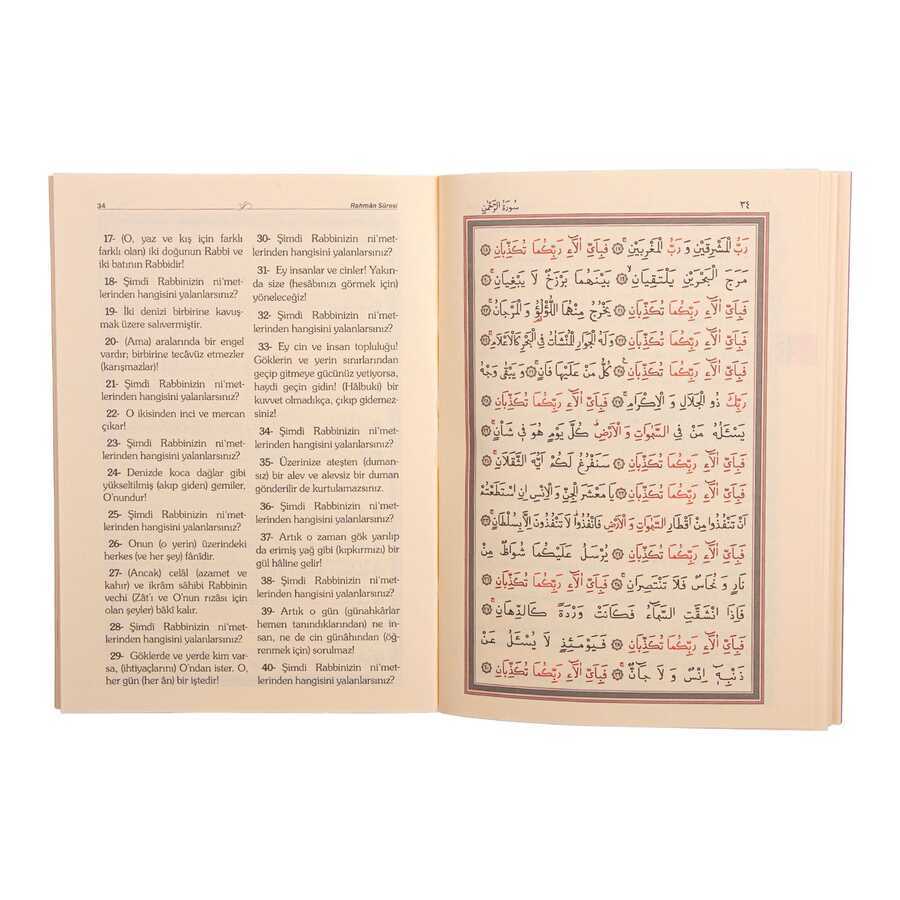 34
Rahmân Sûresi
17- (O, yaz ve kış için farklı
farklı olan) iki doğunun Rabbi ve
iki batının Rabbidir!
18- Şimdi Rabbinizin ni'met-
lerinden hangisini yalanlarsınız?
19- İki denizi birbirine kavuş-
mak üzere salıvermiştir.
20- (Ama) aralarında bir engel
vardır; birbirine tecâvüz etmezler
(karışmazlar)!
21- Şimdi Rabbinizin ni'met-
lerinden hangisini yalanlarsınız?
22- O ikisinden inci ve mercan
çıkar!
23- Şimdi Rabbinizin ni'met-
lerinden hangisini yalanlarsınız?
24- Denizde koca dağlar gibi
yükseltilmiş (akıp giden) gemiler,
O'nundur!
25- Şimdi Rabbinizin ni'met-
lerinden hangisini yalanlarsınız?
26- Onun (o yerin) üzerindeki
herkes (ve her şey) fânîdir.
27- (Ancak) celâl (azamet ve
kahır) ve ikrâm sâhibi Rabbinin
vechi (Zât'ı ve O'nun rızâsı için
olan şeyler) bâkî kalır.
28- Şimdi Rabbinizin ni'met-
lerinden hangisini yalanlarsınız?
29- Göklerde ve yerde kim var-
sa, (ihtiyaçlarını) O'ndan ister. O,
her gün (her ân) bir iştedir!
30- Şimdi Rabbinizin ni'met-
lerinden hangisini yalanlarsınız?
31- Ey insanlar ve cinler! Yakın-
da size (hesâbınızı görmek için)
yöneleceğiz!
32- Şimdi Rabbinizin ni'met-
lerinden hangisini yalanlarsınız?
33- Ey cin ve insan topluluğu!
Göklerin ve yerin sınırlarından
geçip gitmeye gücünüz yetiyorsa,
haydi geçin gidin! (Hâlbuki) bir
kuvvet olmadıkça, çıkıp gidemez-
siniz!
34- Şimdi Rabbinizin ni'met-
lerinden hangisini yalanlarsınız?
35- Üzerinize ateşten (duman-
sız) bir alev ve alevsiz bir duman
gönderilir de kurtulamazsınız.
36- Şimdi Rabbinizin ni'met-
lerinden hangisini yalanlarsınız?
37- Artık o zaman gök yarılıp
da erimiş yağ gibi (kıpkırmızı) bir
gül hâline gelir!
38- Şimdi Rabbinizin ni'met-
lerinden hangisini yalanlarsınız?
39- Artık o gün (günahkârlar
hemen tanındıklarından) ne in-
san, ne de cin günâhından (öğ-
renmek için) sorulmaz!
40- Şimdi Rabbinizin ni'met-
lerinden hangisini yalanlarsınız?
٣٤
سُورَةُ الرَّحْمٰنِ
رَبُّ الْمَشْرِقَيْنِ وَ رَبُّ الْمَغْرِبَيْنِۚ ﴿١٧﴾ فَبِاَيِّ اٰلَٓاءِ رَبِّكُمَا تُكَذِّبَانِ ﴿١٨﴾
مَرَجَ الْبَحْرَيْنِ يَلْتَقِيَانِۙ ﴿١٩﴾ بَيْنَهُمَا بَرْزَخٌ لَا يَبْغِيَانِۚ ﴿٢٠﴾
فَبِاَيِّ اٰلَٓاءِ رَبِّكُمَا تُكَذِّبَانِ ﴿٢١﴾ يَخْرُجُ مِنْهُمَا اللُّؤْلُؤُ وَ الْمَرْجَانُۚ ﴿٢٢﴾
فَبِاَيِّ اٰلَٓاءِ رَبِّكُمَا تُكَذِّبَانِ ﴿٢٣﴾ وَلَهُ الْجَوَارِ الْمُنْشَاٰتُ فِي الْبَحْرِ كَالْاَعْلَامِۚ ﴿٢٤﴾
فَبِاَيِّ اٰلَٓاءِ رَبِّكُمَا تُكَذِّبَانِ ﴿٢٥﴾ كُلُّ مَنْ عَلَيْهَا فَانٍۚ ﴿٢٦﴾ وَ يَبْقٰى وَجْهُ
رَبِّكَ ذُو الْجَلَالِ وَ الْاِكْرَامِۚ ﴿٢٧﴾ فَبِاَيِّ اٰلَٓاءِ رَبِّكُمَا تُكَذِّبَانِ ﴿٢٨﴾
يَسْـَٔلُهُ مَنْ فِي السَّمٰوَاتِ وَ الْاَرْضِۜ كُلَّ يَوْمٍ هُوَ فِي شَأْنٍۚ ﴿٢٩﴾
فَبِاَيِّ اٰلَٓاءِ رَبِّكُمَا تُكَذِّبَانِ ﴿٣٠﴾ سَنَفْرُغُ لَكُمْ اَيُّهَ الثَّقَلَانِۚ ﴿٣١﴾
فَبِاَيِّ اٰلَٓاءِ رَبِّكُمَا تُكَذِّبَانِ ﴿٣٢﴾ يَا مَعْشَرَ الْجِنِّ وَ الْاِنْسِ اِنِ اسْتَطَعْتُمْ
اَنْ تَنْفُذُوا مِنْ اَقْطَارِ السَّمٰوَاتِ وَ الْاَرْضِ فَانْفُذُواۜ لَا تَنْفُذُونَ اِلَّا بِسُلْطَانٍۚ ﴿٣٣﴾
فَبِاَيِّ اٰلَٓاءِ رَبِّكُمَا تُكَذِّبَانِ ﴿٣٤﴾ يُرْسَلُ عَلَيْكُمَا شُوَاظٌ مِنْ
نَارٍ وَ نُحَاسٌ فَلَا تَنْتَصِرَانِۚ ﴿٣٥﴾ فَبِاَيِّ اٰلَٓاءِ رَبِّكُمَا تُكَذِّبَانِ ﴿٣٦﴾
فَاِذَا انْشَقَّتِ السَّمَٓاءُ فَكَانَتْ وَرْدَةً كَالدِّهَانِۚ ﴿٣٧﴾
فَبِاَيِّ اٰلَٓاءِ رَبِّكُمَا تُكَذِّبَانِ ﴿٣٨﴾ فَيَوْمَئِذٍ لَا يُسْـَٔلُ عَنْ
ذَنْبِهٖٓ اِنْسٌ وَ لَا جَٓانٌّۚ ﴿٣٩﴾ فَبِاَيِّ اٰلَٓاءِ رَبِّكُمَا تُكَذِّبَانِ ﴿٤٠﴾